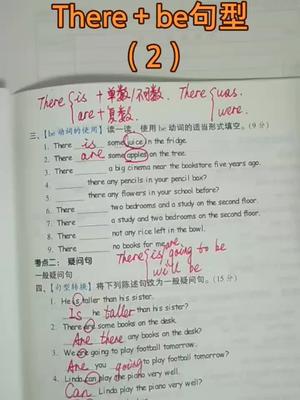 There + be句型
（2）
There is + 单数/不可数. There was.
are + 复数. were.
三、【be 动词的使用】读一读，使用 be 动词的适当形式填空。(9 分)
1. There is some juice in the fridge.
2. There are some apples on the tree.
3. There a big cinema near the bookstore five years ago.
4. there any pencils in your pencil box?
5. there any flowers in your school before?
6. There two bedrooms and a study on the second floor.
7. There a study and two bedrooms on the second floor.
8. There not any rice left in the bowl.
9. There no books for me.
There is/are going to be
will be
考点二： 疑问句
一般疑问句
四、【句型转换】将下列陈述句改为一般疑问句。(15 分)
1. He is taller than his sister.
Is he taller than his sister?
2. There are some books on the desk.
Are there any books on the desk?
3. We are going to play football tomorrow.
Are you going to play football tomorrow?
4. Linda can play the piano very well.
Can Linda play the piano very well?